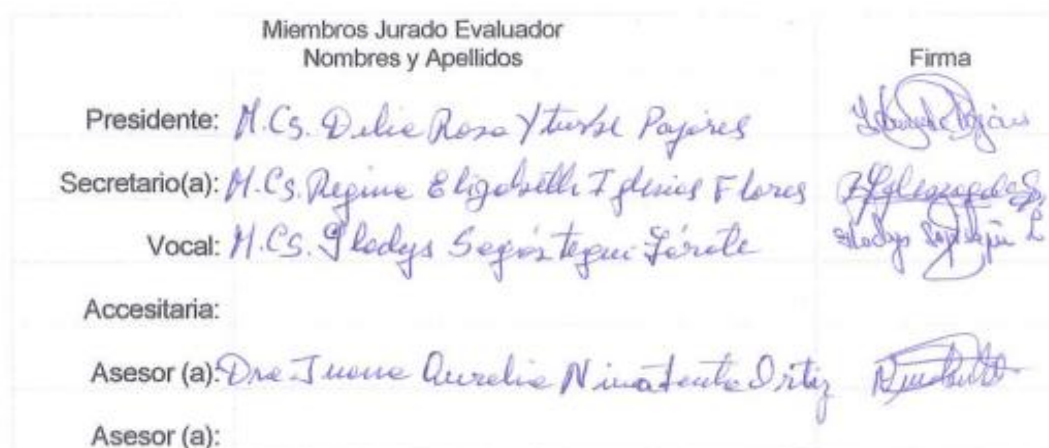 Miembros Jurado Evaluador
Nombres y Apellidos
Firma
Presidente: M.Cs. Delia Rosa Yturbe Pajares
Secretario(a): M.Cs. Regina Elizabeth Iglesias Flores
Vocal: M.Cs. Gladys Sagástegui Zárate
Accesitaria:
Asesor (a): Dra Juana Aurelia Ninatanta Ortiz
Asesor (a):